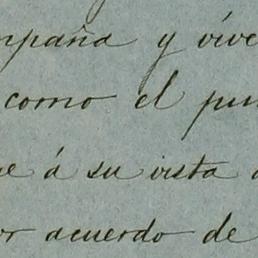 mpaña y vive
como el pu
e á su vista
or acuerdo de